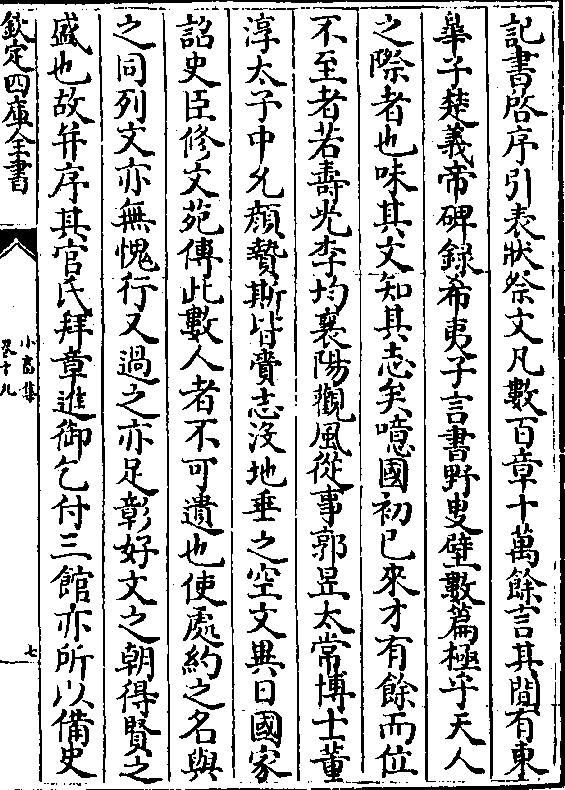 記書啓序引表狀祭文凡數百章十萬餘言其間有東
臯子楚義帝碑録希夷子言書野叟壁數篇極乎天人
之際者也味其文知其志矣噫國初已來才有餘而位
不至者若壽光李均襄陽觀風從事郭昱太常博士董
淳太子中允顔贄斯皆賫志沒地垂之空文異日國家
詔史臣修文苑傳此數人者不可遺也使處約之名與
之同列文亦無愧行又過之亦足彰好文之朝得賢之
盛也故并序其官氏拜章進御乞付三館亦所以備史
欽定四庫全書
小畜集
卷十九
七